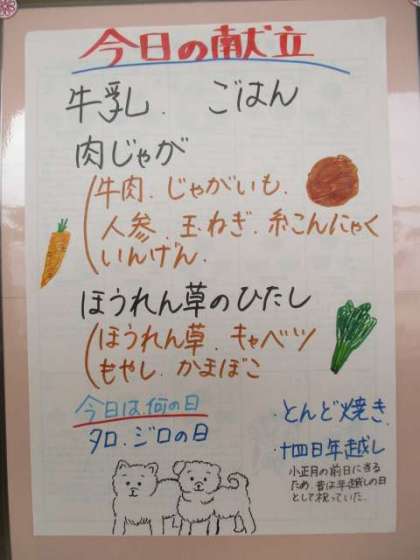 今日の献立
牛乳. ごはん
肉じゃが
牛肉.じゃがいも.
人参.玉ねぎ.糸こんにゃく
いんげん.
ほうれん草のひたし
ほうれん草.キャベツ
もやし.かまぼこ
今日は何の日
タロ.ジロの日
・とんど焼き
・十四日年越し
小正月の前日にあるため、昔は年越しの日として祝っていた。